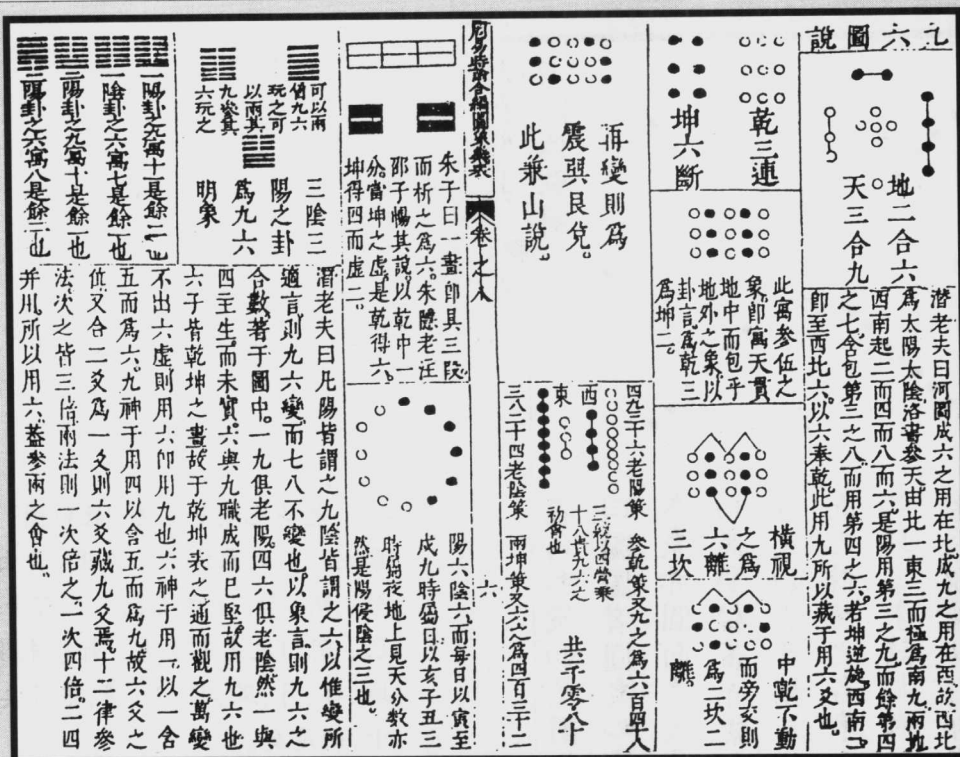 九六圖說
地二合六
天三合九
潛老夫曰河圖成六之用在北成九之用在西故西北
為太陽太陰洛書參天由北一東三而極為南九兩地
西南起二而四而八而六是陽用第三之九而餘第四
之七含包第三之八而用第四之六若坤逆施西南二
即至西北六以六奉乾此用九所以藏于用六爻也
乾三連
坤六斷
此寓參伍之
象即寓天貫
地中而包乎
地外之象以
卦言為乾三
為坤二
橫視
之為
六離
三坎
中乾不動
而旁交則
為二坎二
離
再變則為
震巽艮兌
此兼山說
四九三十六老陽策
參乾策又九之為六百四十八
西
東
十八皆九六之
動會也
共一千零八十
三八二十四老陰策
兩坤策又六之為四百三十二
卷之八
六
朱子曰一畫即具三段
而析之為六朱隱老注
邵子暢其說以乾中一
分當坤之虛是乾得六
坤得四而虛二
陽六陰六而每日以寅至
戌九時屬日以亥子丑三
時屬夜地上見天分數亦
然是陽侵陰之三也
可以兩
倍九六
玩之可
以兩其
九參其
六玩之
三陰三
陽之卦
為九六
明象
一陽卦之九寓十是餘二也
一陰卦之六寓七是餘一也
二陽卦之九寓十是餘一也
二陽卦之六寓八是餘二也
潛老夫曰凡陽皆謂之九陰皆謂之六以惟變所
適言則九六變而七八不變也以象言則九六之
合數著于圖中一九俱老陽四六俱老陰然一與
四主生而未實六與九職成而已堅故用九六也
六子皆乾坤之畫故于乾坤表之通而觀之萬變
不出六虛則用六即用九也六神于用一以一含
五而為六九神于用四以含五而為九故六爻之
位又合二爻為一爻則六爻藏九爻焉十二律參
法次之皆三倍兩法則一次倍之一次四倍二四
并用所以用六蓋參兩之會也